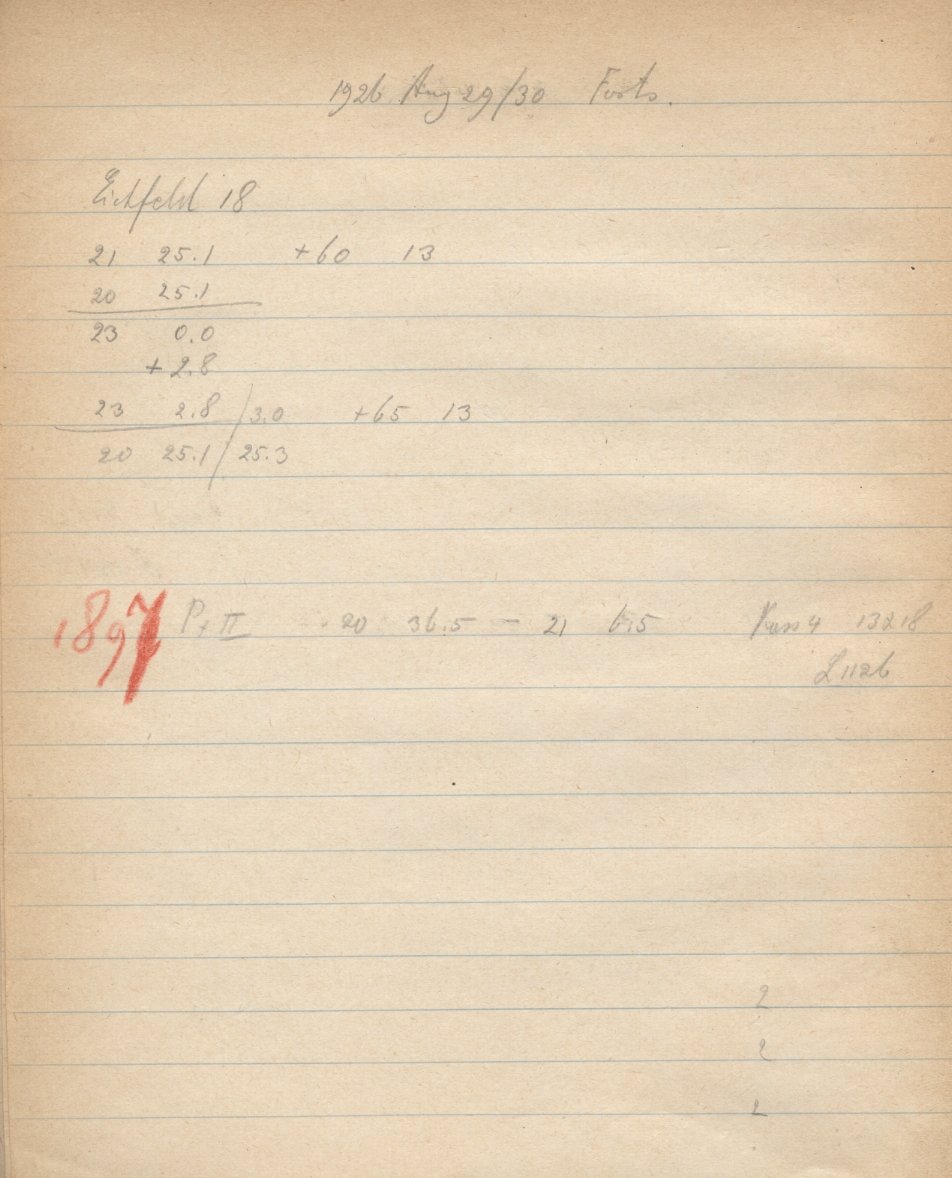 1926 Aug 29/30 Forts.
Eichfeld 18
21 25.1 +60 13
20 25.1
23 0.0
+ 2.8
23 2.8 / 3.0 +65 13
20 25.1 / 25.3
1897 P, II 20 36.5 – 21 6.5 Kass 4 13218
L 1126
2
2
2